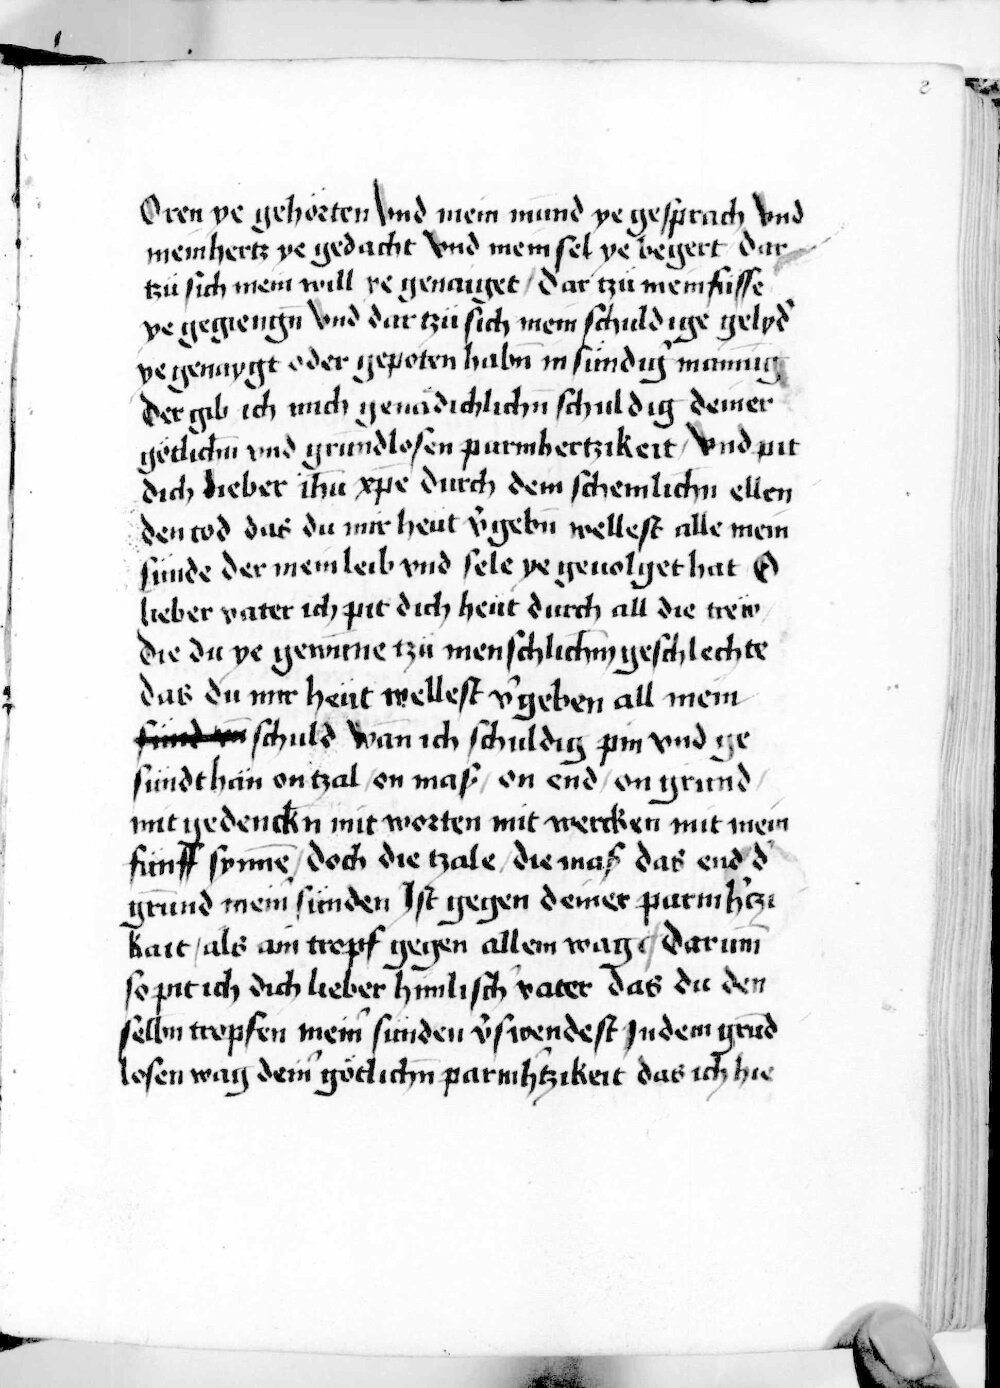 2
Oren ye gehörten Vnd mein mund ye gesprach Vnd
mein hertz ye gedacht Vnd mein sel ye begert dar
tzü sich mein will ye genaiget / dar tzü mein füsse
ye gegiengn̄ Vnd dar tzü sich mein schuldige gelyd̉
ye genaygt oder gepoten habn̄ in sündig̉ mainūg
Der gib ich mich genādichlichn̄ schuldig deiner
götlichn̄ vnd grundlosen parmhertzikeit / Vnd pit
dich lieber ih̄u xp̄e durch dein schemlichn̄ ellen
den tod das du mir heüt v̉gebn̄ wellest alle mein
sünde der mein leib vnd sele ye geuolget hat O
lieber vater ich pit dich heüt durch all die trew /
die du ye gewūnne tzü menschlichm̄ geschlechte
das du mir heüt wellest v̉geben all mein
sünd vn̄ schuld Wān ich schuldig pin vnd ge
sündt hān on tzal / on mass / on end / on grund /
mit gedenckn̄ mit worten mit wercken mit mein
fünff synnē / doch die tzale / die mass das end d̉
grūnd mein̉ sünden Ist gegen deiner parmh̉tzi
kait / als ain tropf gegen allem wag / Darum̄
so pit ich dich lieber himlisch̉ vater das du den
selbn̄ tropfen mein̉ sünden v̉swendest In dein grūd
losen wag dein̉ götlichn̄ parmh̉tzikeit das ich hie